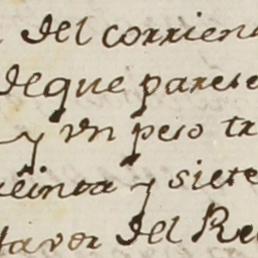 del corrien
deque parese
y un peso tr
einta y siete
del Re